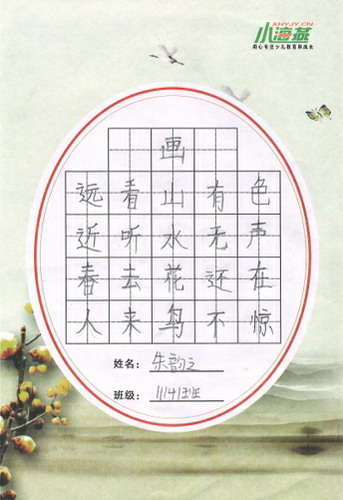 XHYJY.CN
小海燕
用心专注少儿教育和成长
画
远看山有色
近听水无声
春去花还在
人来鸟不惊
姓名：朱韵之
班级：